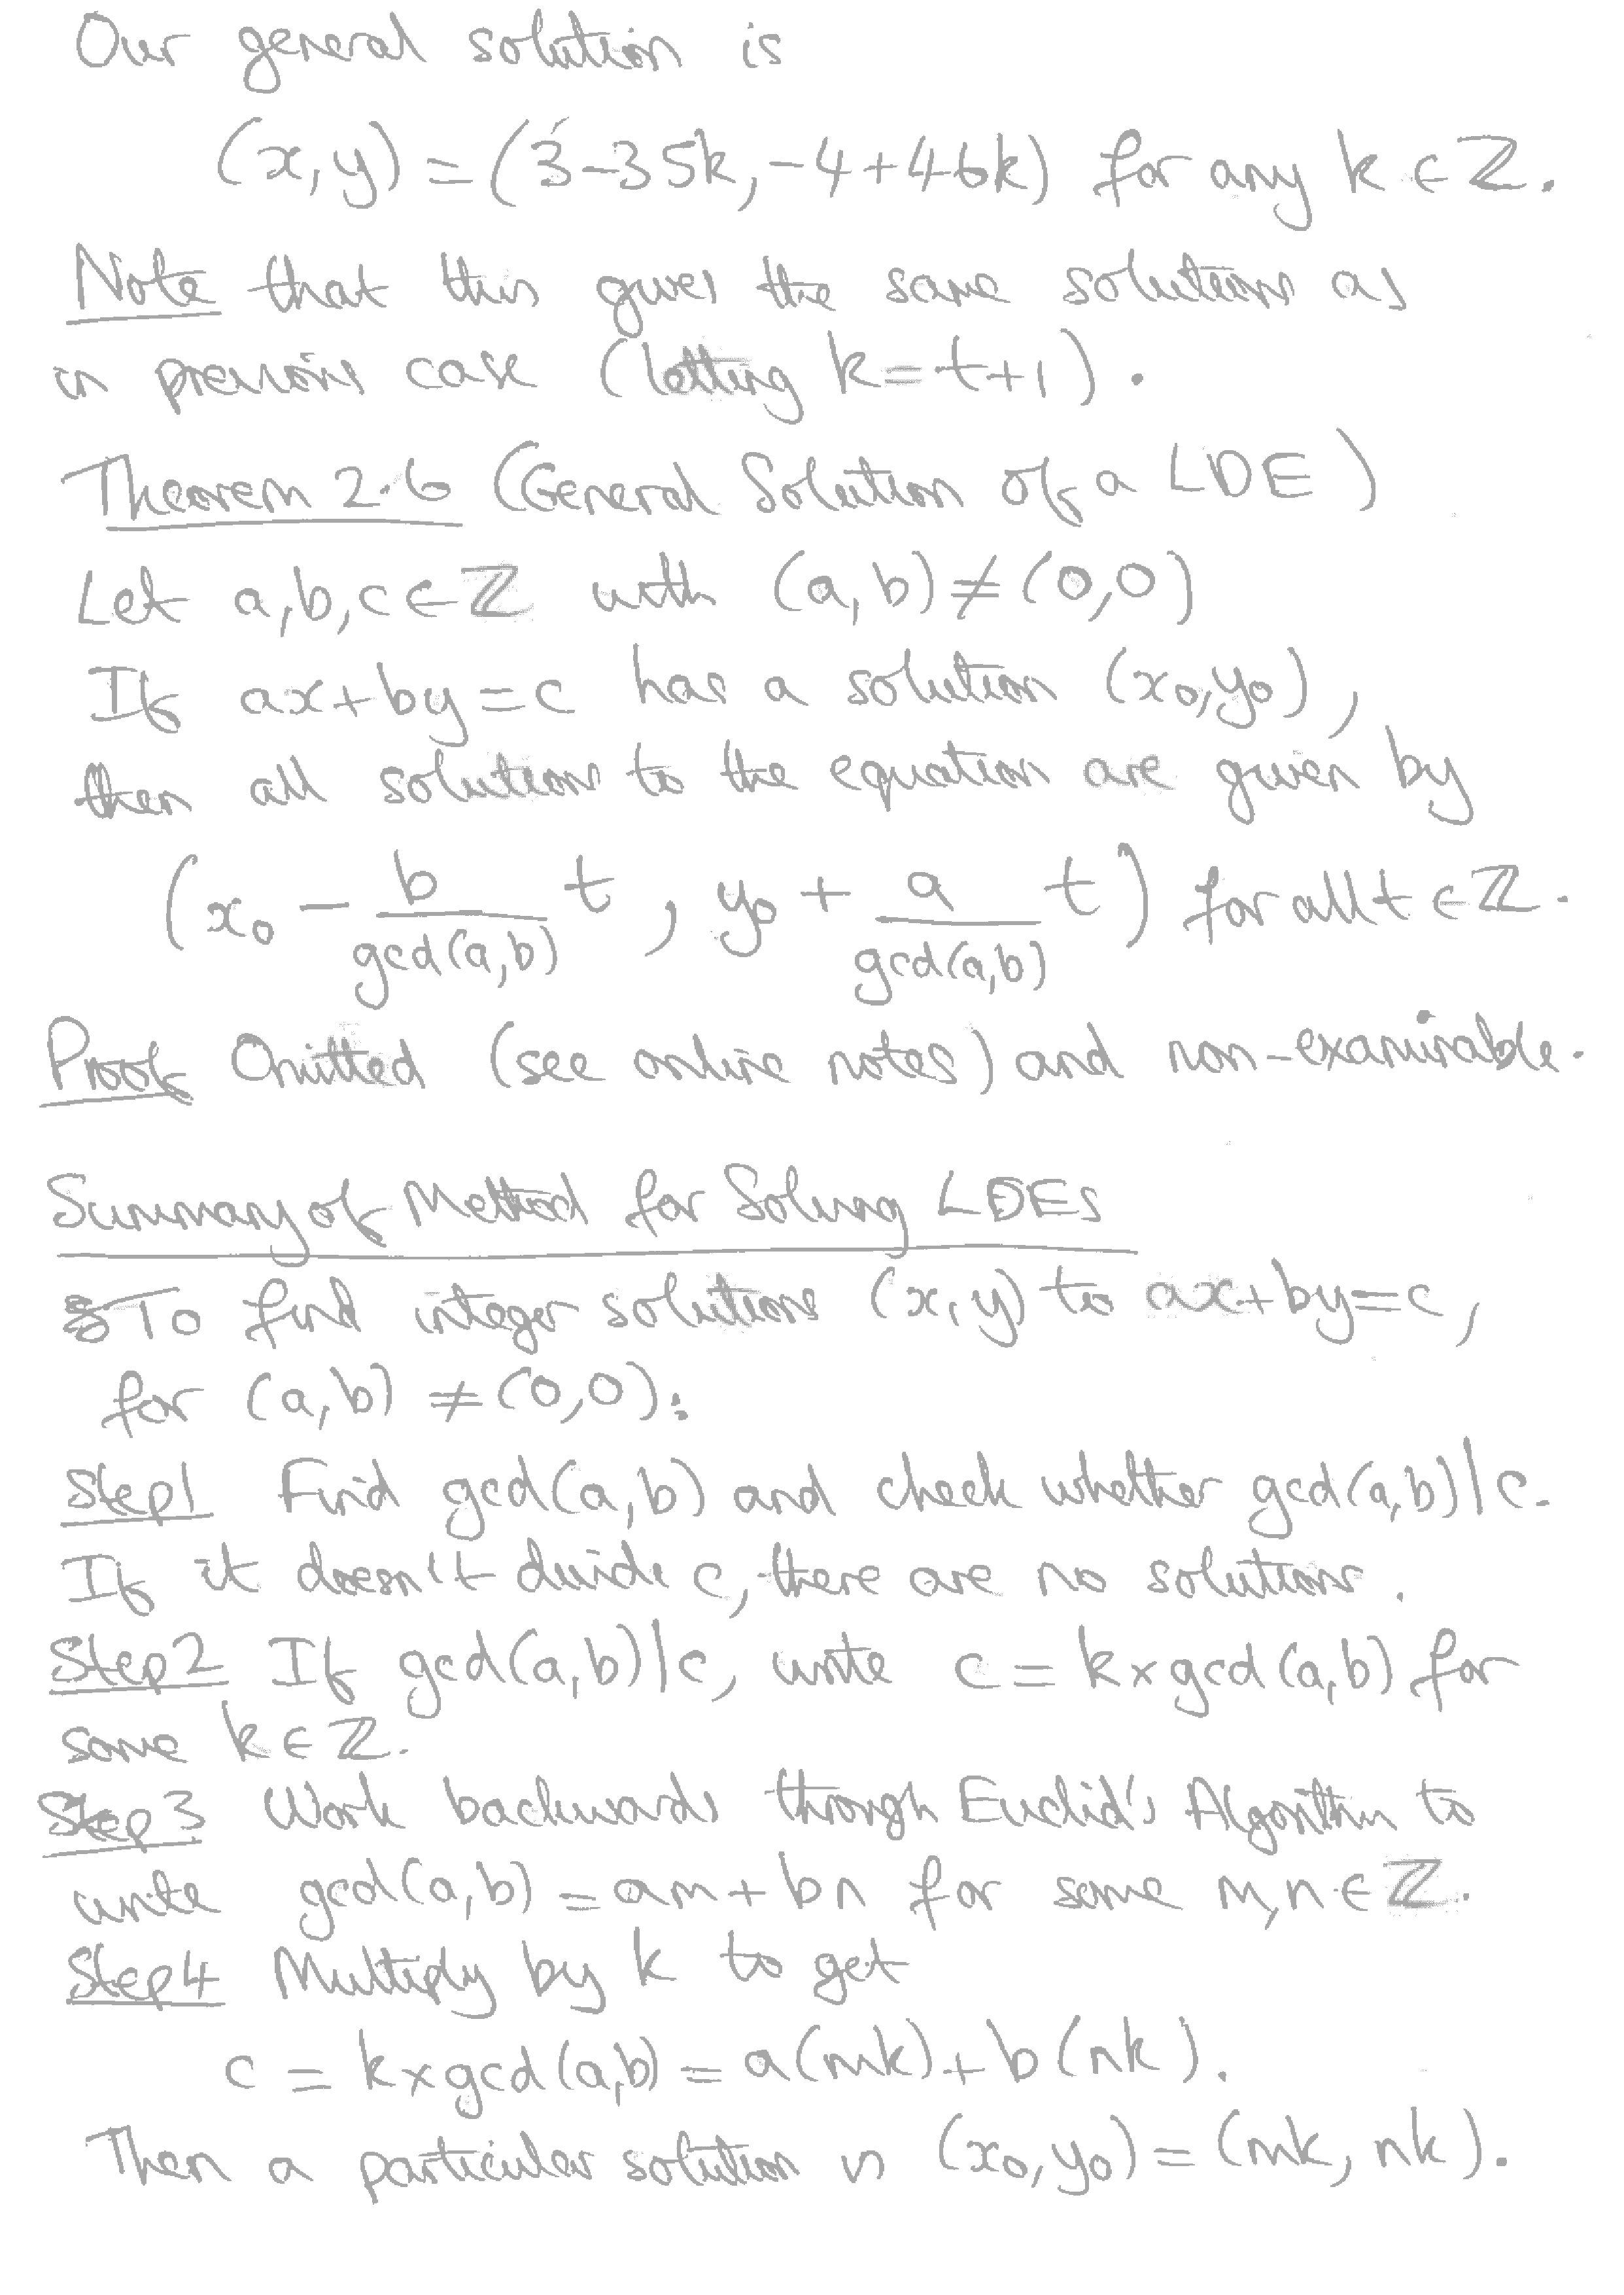 Our general solution is
(x,y) = (3-35k, -4+46k) for any k ∈ ℤ.
Note that this gives the same solutions as
in previous case (letting k=t+1).
Theorem 2.6 (General Solution of a LDE)
Let a,b,c ∈ ℤ with (a,b) ≠ (0,0)
If ax+by=c has a solution (x₀,y₀),
then all solutions to the equation are given by
(x₀ - b/gcd(a,b) t, y₀ + a/gcd(a,b) t) for all t ∈ ℤ.
Proof Omitted (see online notes) and non-examinable.
Summary of Method for Solving LDEs
To find integer solutions (x,y) to ax+by=c,
for (a,b) ≠ (0,0):
Step 1 Find gcd(a,b) and check whether gcd(a,b)|c.
If it doesn't divide c, there are no solutions.
Step 2 If gcd(a,b)|c, write c = k×gcd(a,b) for
some k ∈ ℤ.
Step 3 Work backwards through Euclid's Algorithm to
write gcd(a,b) = am + bn for some m,n ∈ ℤ.
Step 4 Multiply by k to get
c = k×gcd(a,b) = a(mk) + b(nk).
Then a particular solution is (x₀,y₀) = (mk, nk).